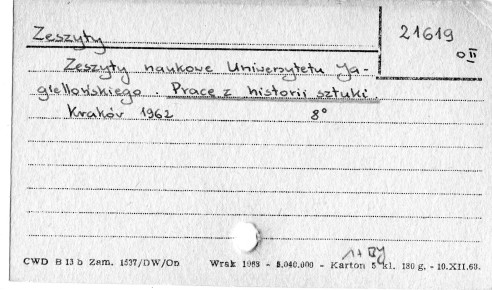 Zeszyty
21619
o II
Zeszyty naukowe Uniwersytetu Ja-
giellońskiego. Prace z historii sztuki.
Kraków 1962 8°
1+
CWD B 13 b Zam. 1537/DW/On Wrak 1963 - 5.040.000 - Karton 5 kl. 180 g. - 10.XII.63.